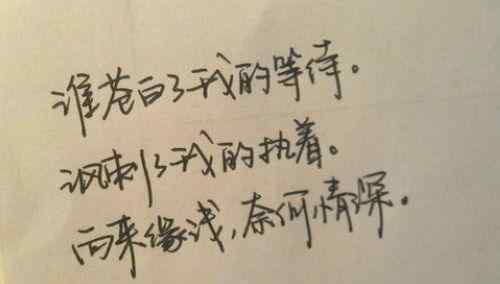 谁苍白了我的等待。
讽刺了我的执着。
而来缘浅,奈何情深。